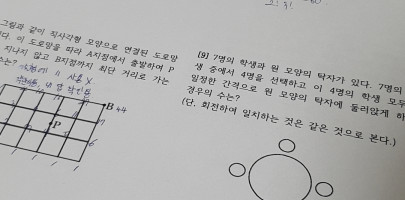 그림과 같이 직사각형 모양으로 연결된 도로망
다. 이 도로망을 따라 A지점에서 출발하여 P
지나지 않고 B지점까지 최단 거리로 가는
수는?
B 44
P
[9] 7명의 학생과 원 모양의 탁자가 있다. 7명의
생 중에서 4명을 선택하고 이 4명의 학생 모두
일정한 간격으로 원 모양의 탁자에 둘러앉게 하
경우의 수는?
(단, 회전하여 일치하는 것은 같은 것으로 본다.)